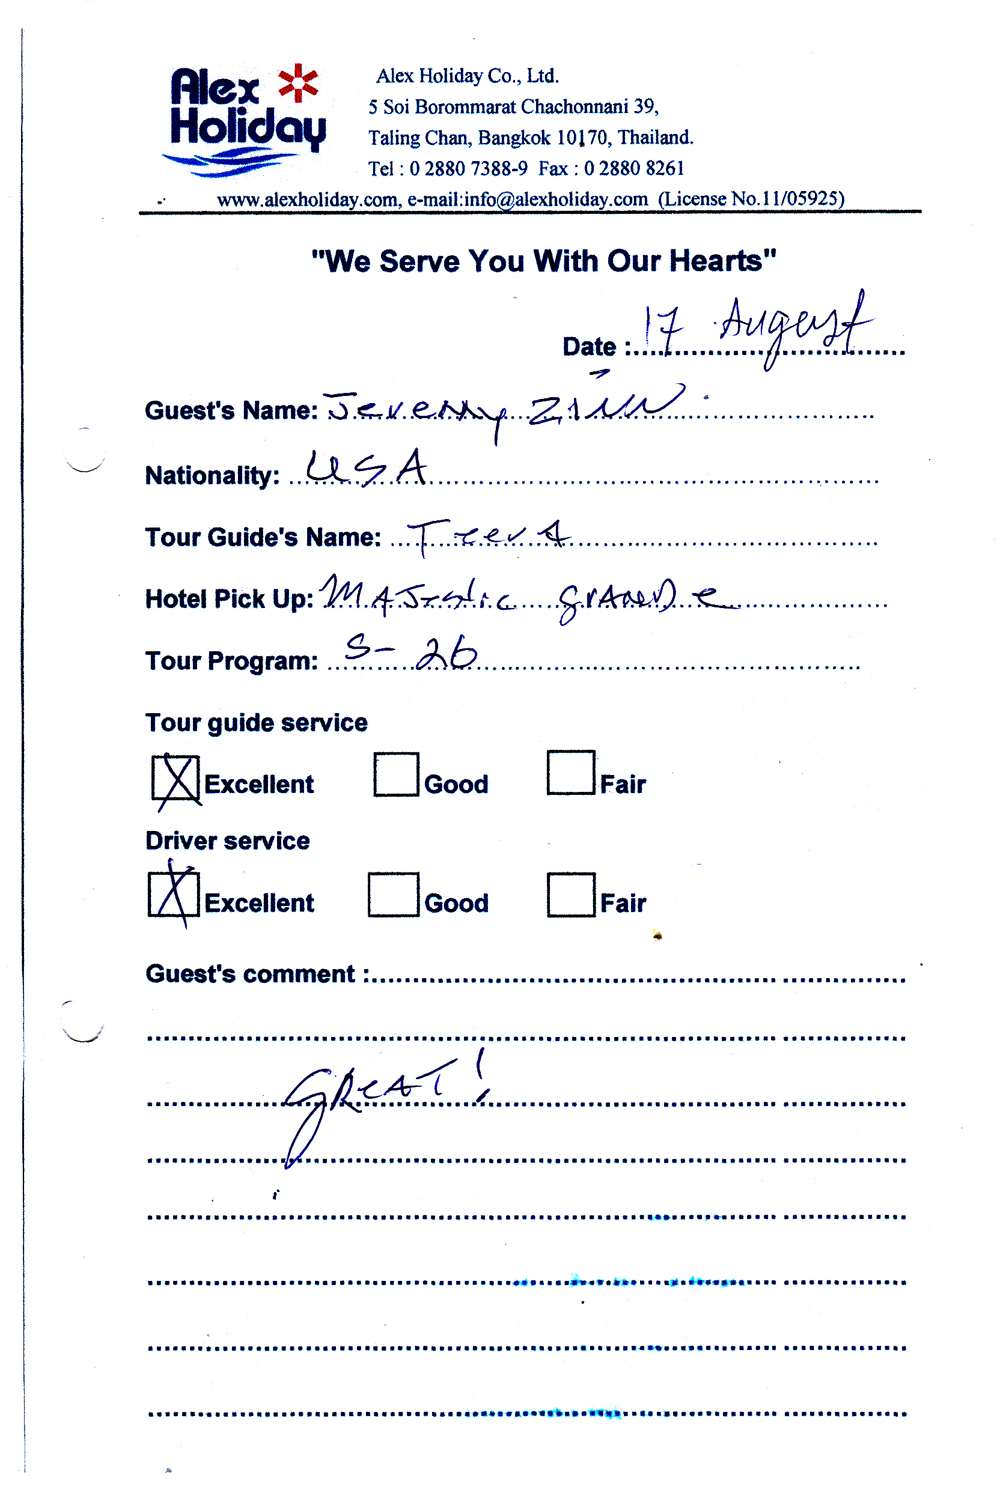 Alex Holiday
Alex Holiday Co., Ltd.
5 Soi Borommarat Chachonnani 39,
Taling Chan, Bangkok 10170, Thailand.
Tel : 0 2880 7388-9 Fax : 0 2880 8261
www.alexholiday.com, e-mail:info@alexholiday.com (License No.11/05925)
"We Serve You With Our Hearts"
Date : 17 August
Guest's Name: Jeremy Zinn
Nationality: USA
Tour Guide's Name: Teera
Hotel Pick Up: MAJestic grANDe
Tour Program: S-26
Tour guide service
X Excellent Good Fair
Driver service
X Excellent Good Fair
Guest's comment :
GREAT!